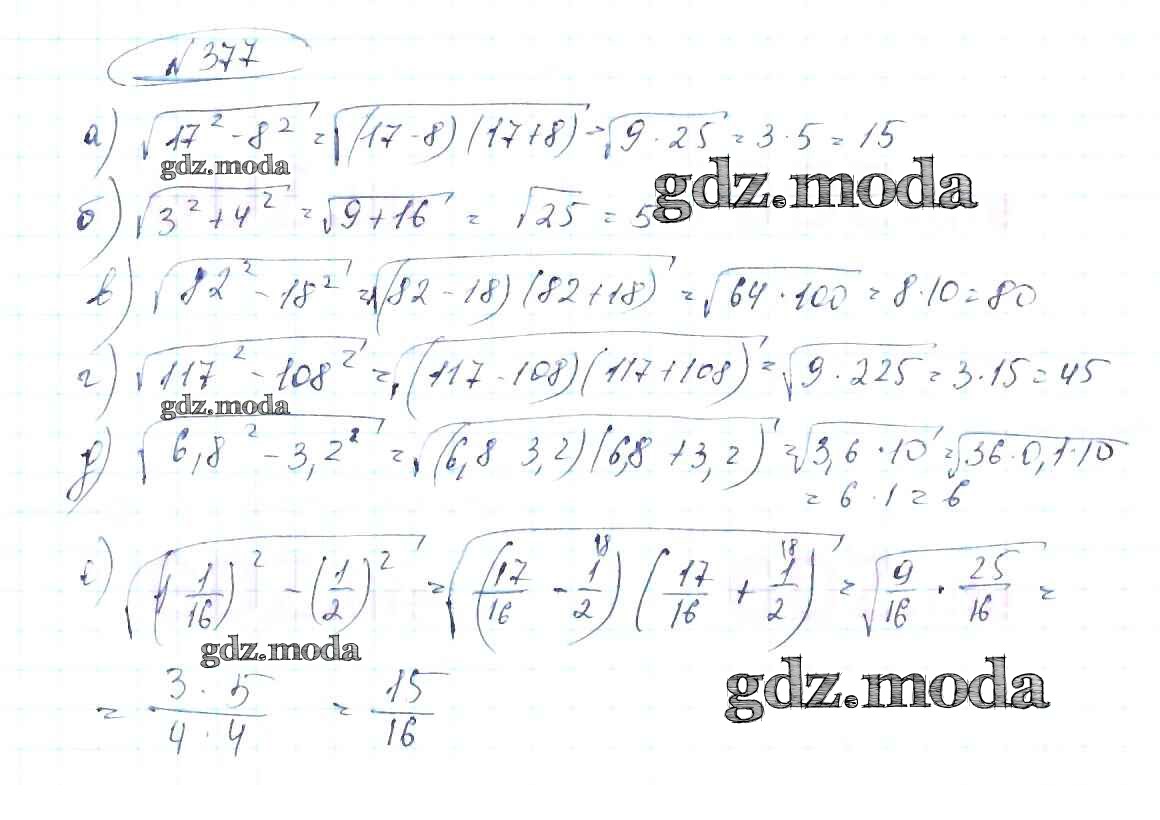 № 377
а) √(17² - 8²) = √((17-8)(17+8)) = √(9·25) = 3·5 = 15
gdz.moda
gdz.moda
б) √(3² + 4²) = √(9+16) = √25 = 5
в) √(82² - 18²) = √((82-18)(82+18)) = √(64·100) = 8·10 = 80
г) √(117² - 108²) = √((117-108)(117+108)) = √(9·225) = 3·15 = 45
gdz.moda
д) √(6,8² - 3,2²) = √((6,8 3,2)(6,8+3,2)) = √(3,6·10) = √(36·0,1·10)
= 6·1 = 6
е) √((1 1/16)² - (1/2)²) = √((17/16 - 1/2 \8)(17/16 + 1/2 \8)) = √(9/16 · 25/16) =
gdz.moda
= (3·5)/(4·4) = 15/16
gdz.moda